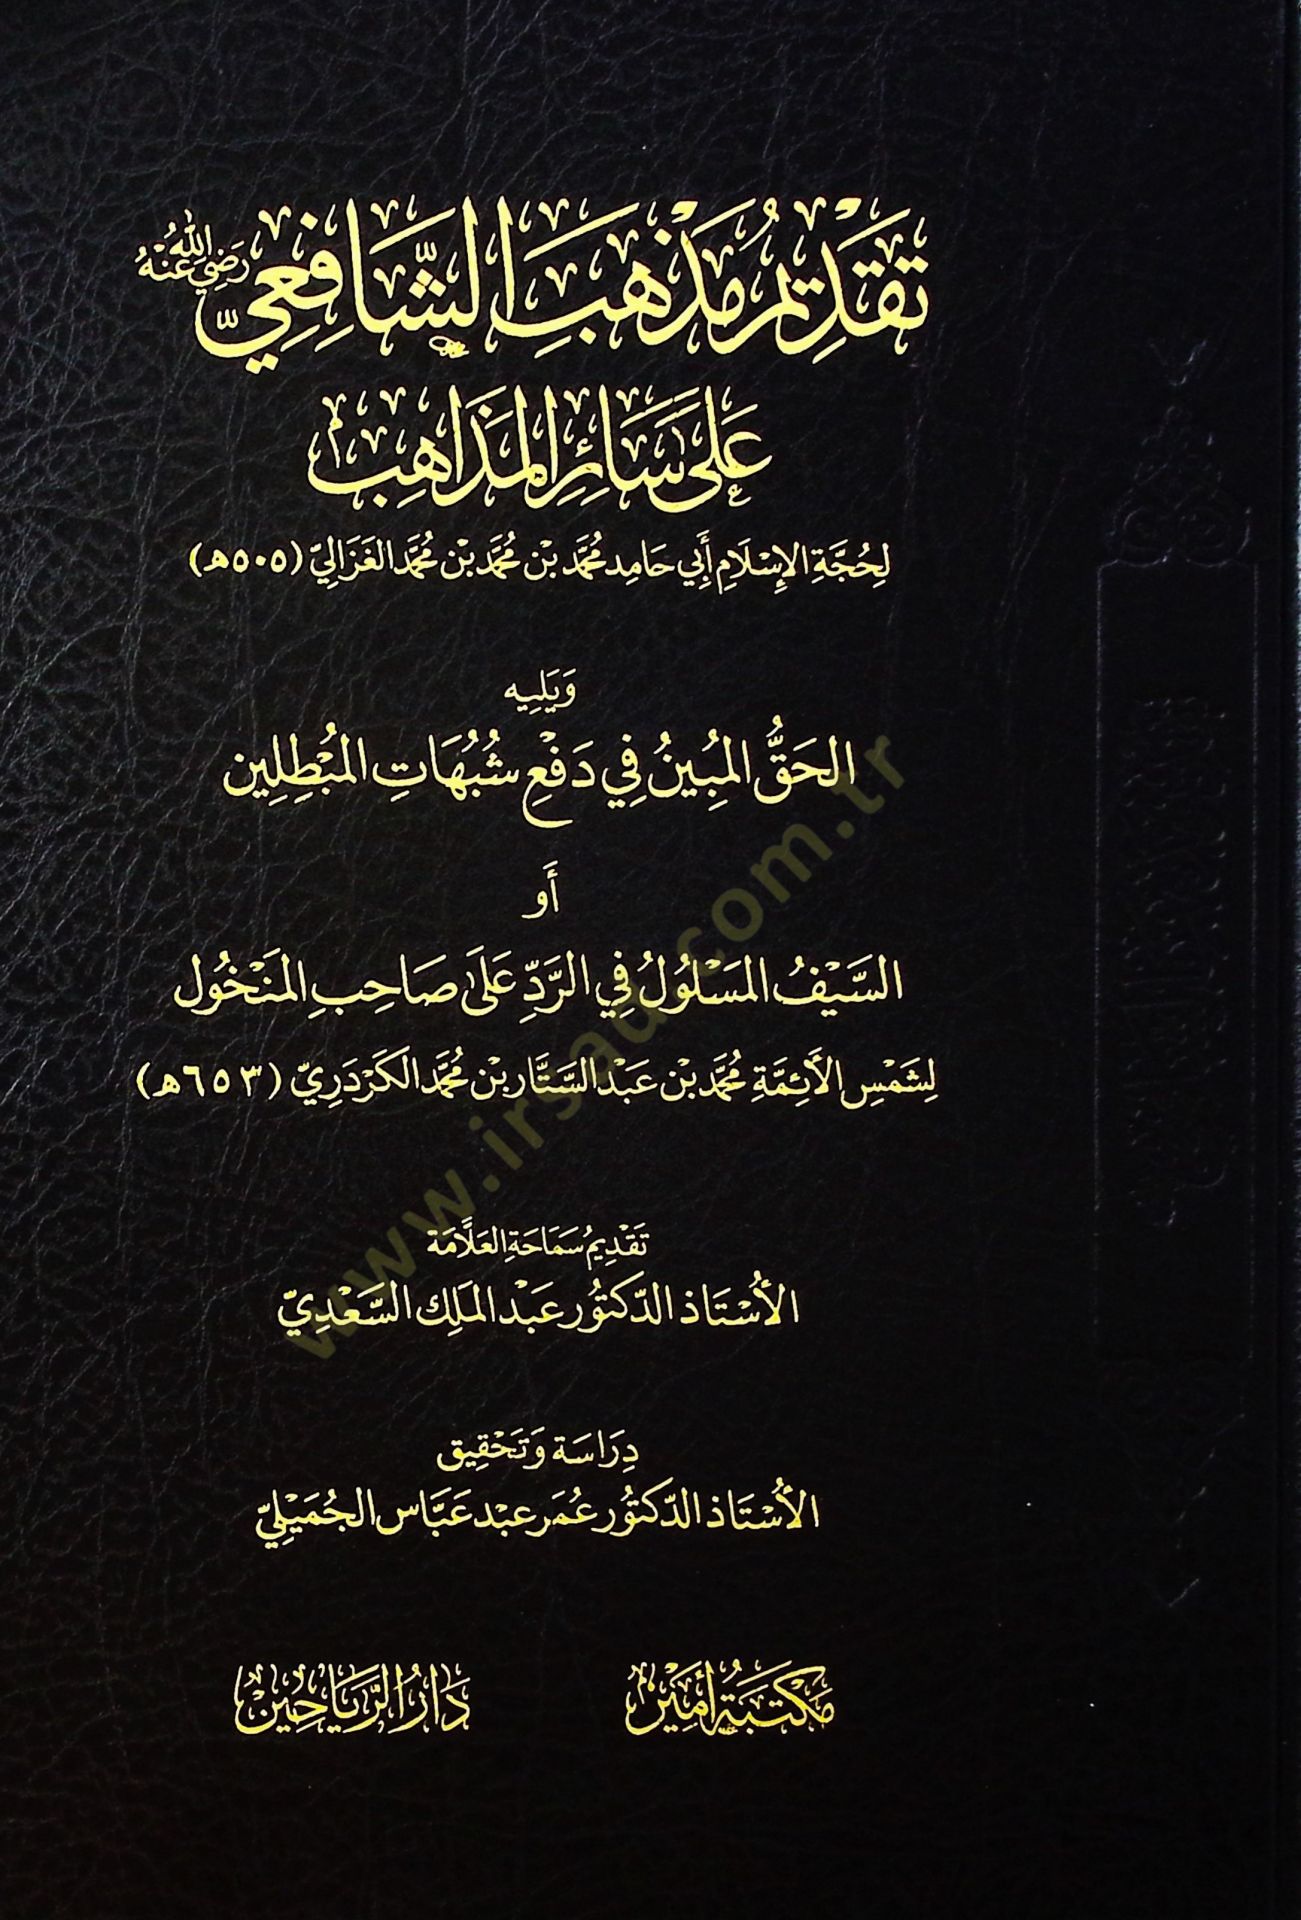 تَقْدِيمُ مَذْهَبِ الشَّافِعِيِّ رَضِيَ اللهُ عَنْهُ
عَلَى سَائِرِ المَذَاهِبِ
لِحُجَّةِ الإِسْلَامِ أَبِي حَامِد مُحَمَّد بْن مُحَمَّد بْن مُحَمَّد الغَزَالِيّ (٥٠٥هـ)
وَيَلِيه
الحَقُّ المُبِينُ فِي دَفْعِ شُبُهَاتِ المُبْطِلِين
أَو
السَّيْفُ المَسْلُولُ فِي الرَّدِّ عَلَى صَاحِبِ المَنْخُول
لِشَمْسِ الأَئِمَّةِ مُحَمَّد بْن عَبْد السَّتَّار بْن مُحَمَّد الكَرْدَرِيّ (٦٥٣هـ)
تَقْدِيمُ سَمَاحَةِ العَلَّامَة
الأُسْتَاذ الدّكتُور عَبْد المَلِك السَّعْدِيّ
دِرَاسَة وَتَحْقِيق
الأُسْتَاذ الدّكتُور عُمَر عَبْد عَبَّاس الجُمَيْلِيّ
مَكْتَبَةُ أَمِين دَارُ الرَّيَاحِين
www.irsad.com.tr